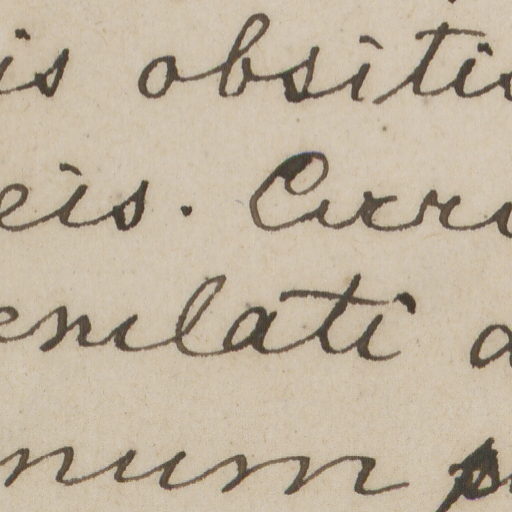 is obsiti
eis. Cirri
enulati a
num